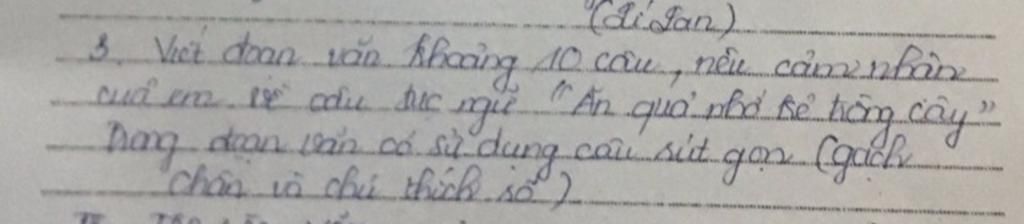 (dí gan)
3. Viết đoạn văn khoảng 10 câu, nêu cảm nhận
của em về câu tục ngữ "Ăn quả nhớ kẻ trồng cây"
Trong đoạn văn có sử dụng câu rút gọn (gạch
chân và chú thích số)